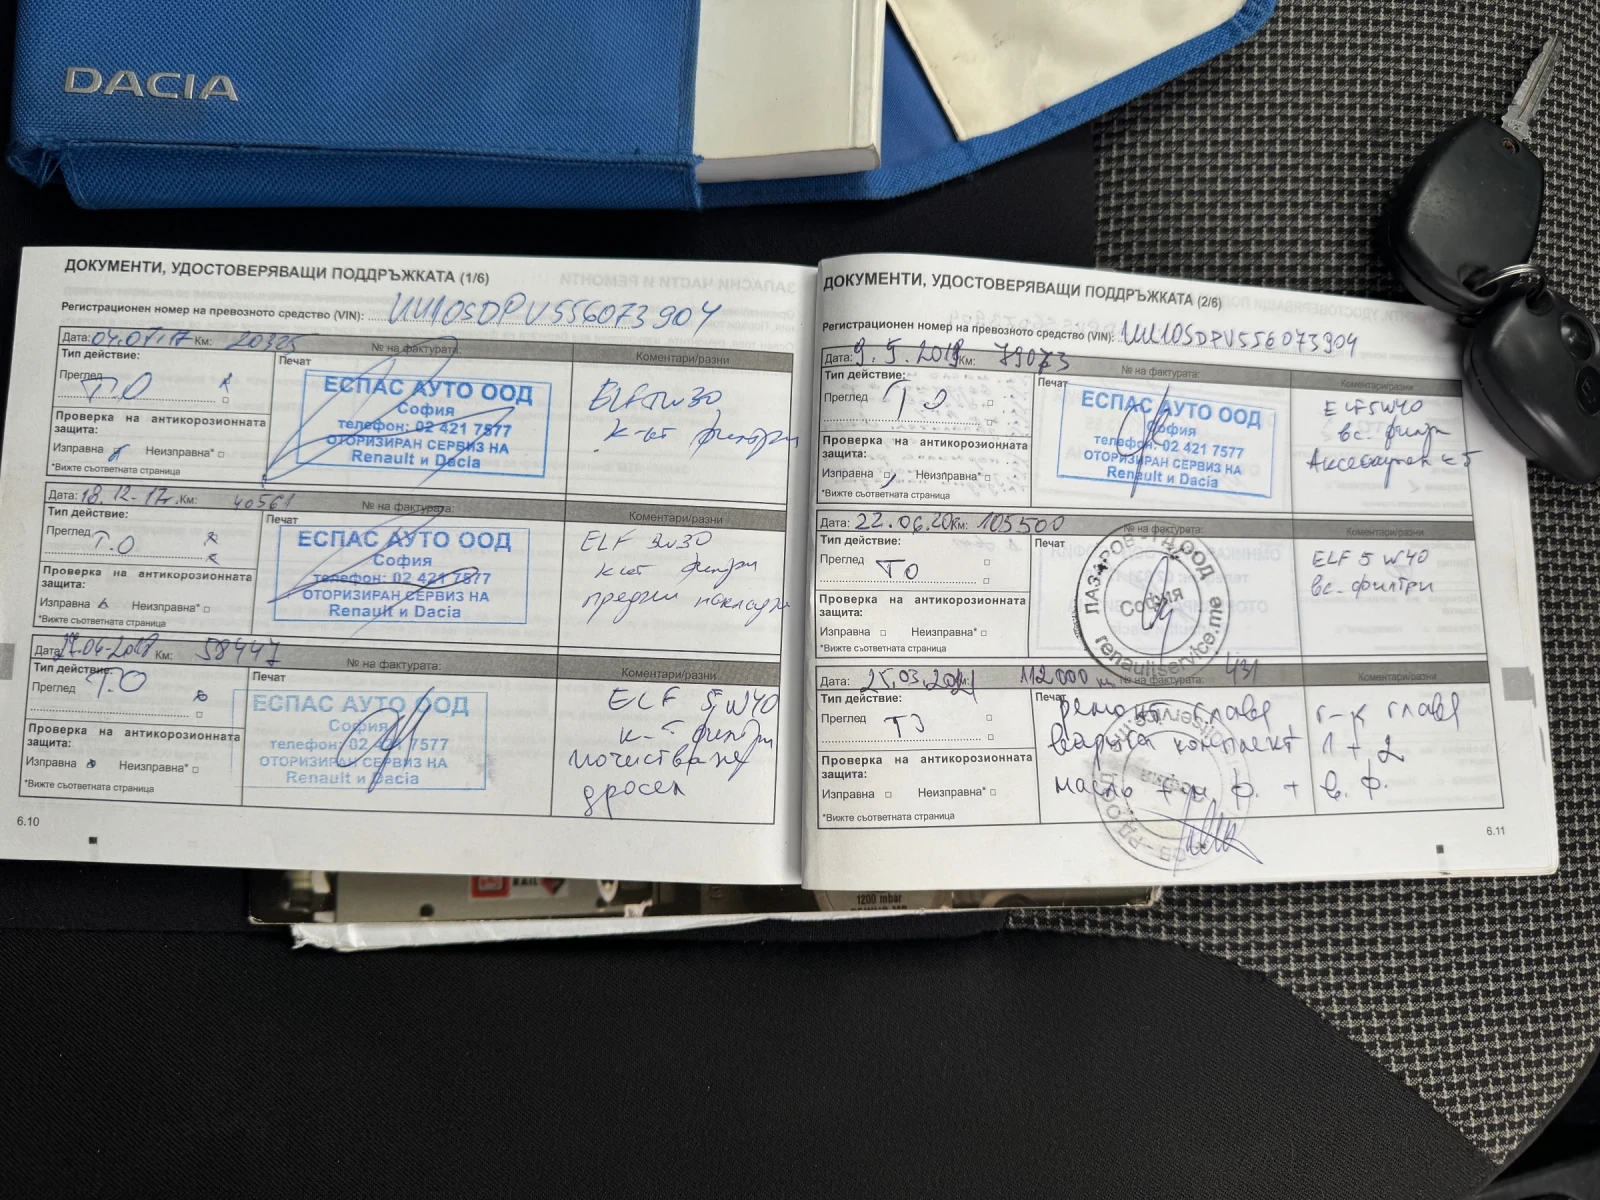 DACIA
ДОКУМЕНТИ, УДОСТОВЕРЯВАЩИ ПОДДРЪЖКАТА (1/6)
Регистрационен номер на превозното средство (VIN): UU10SDPV556073904
Дата: 04.07.17 Км: 20325 № на фактурата:
Тип действие: Печат Коментари/разни
Преглед Т.О
Проверка на антикорозионната
защита:
Изправна Неизправна*
*Вижте съответната страница
ЕСПАС АУТО ООД
София
телефон: 02 421 7577
ОТОРИЗИРАН СЕРВИЗ НА
Renault и Dacia
ELF 5W30
к-кт филтри
Дата: 18.12-17г. Км: 40561 № на фактурата:
Тип действие: Печат Коментари/разни
Преглед Т.О
Проверка на антикорозионната
защита:
Изправна Неизправна*
*Вижте съответната страница
ЕСПАС АУТО ООД
София
телефон: 02 421 7577
ОТОРИЗИРАН СЕРВИЗ НА
Renault и Dacia
ELF 5W30
к-кт филтри
предни накладки
Дата: 04-2018 Км: 58447 № на фактурата:
Тип действие: Печат Коментари/разни
Преглед Т.О
Проверка на антикорозионната
защита:
Изправна Неизправна*
*Вижте съответната страница
ЕСПАС АУТО ООД
София
телефон: 02 421 7577
ОТОРИЗИРАН СЕРВИЗ НА
Renault и Dacia
ELF 5W40
к-т филтри
почистване
дросел
6.10
ДОКУМЕНТИ, УДОСТОВЕРЯВАЩИ ПОДДРЪЖКАТА (2/6)
Регистрационен номер на превозното средство (VIN): UU10SDPV556073904
Дата: 9.5.2019 Км: 79073 № на фактурата:
Тип действие: Печат Коментари/разни
Преглед ТО
Проверка на антикорозионната
защита:
Изправна Неизправна*
*Вижте съответната страница
ЕСПАС АУТО ООД
София
телефон: 02 421 7577
ОТОРИЗИРАН СЕРВИЗ НА
Renault и Dacia
ELF 5W40
вс. филтри
Дата: 22.06.20 Км: 105500 № на фактурата:
Тип действие: Печат Коментари/разни
Преглед ТО
Проверка на антикорозионната
защита:
Изправна Неизправна*
*Вижте съответната страница
София
renaultservice.eu
ELF 5W40
вс. филтри
Дата: 25.03.2021 Км: 112000 № на фактурата: 431
Тип действие: Печат Коментари/разни
Преглед
Проверка на антикорозионната
защита:
Изправна Неизправна*
*Вижте съответната страница
ремонт глава г-к глава
верига комплект 1 + 2
масло + м ф. + в. ф.
София
6.11
RAIL
1200 mbar